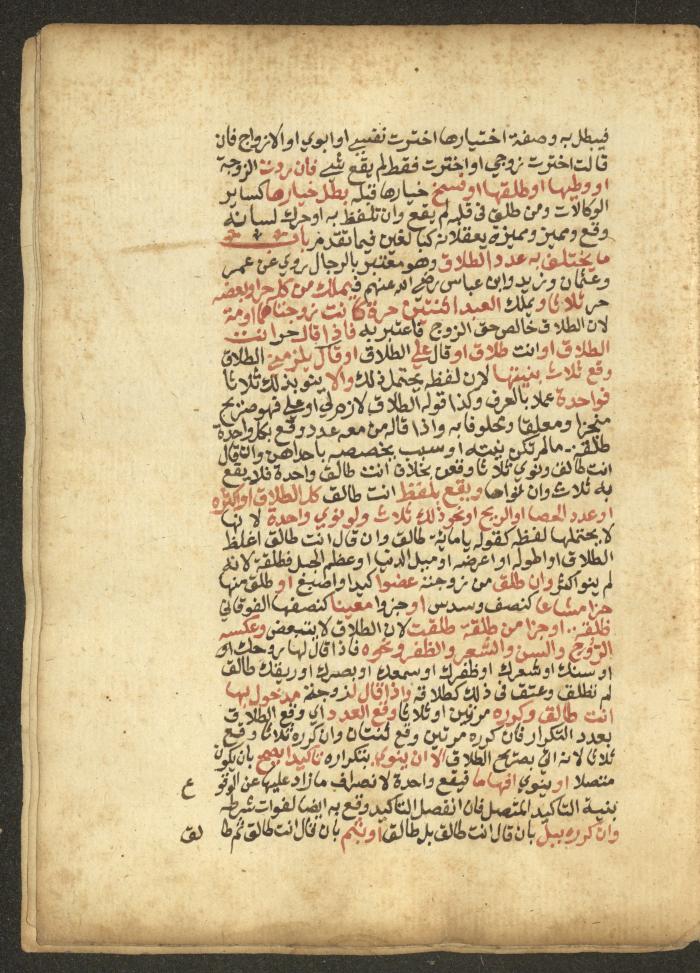 فيبطل به وصفة اختيارها اخترت نفسي او ابوي او الازواج فان
قالت اخترت زوجي او اخترت فقط لم يقع شي فان ردت الزوجة
او وطيها او طلقها او فسخ خيارها قبله بطل خيارها كساير
الوكالات ومن طلق في قلبه لم يقع وان تلفظ به او حرك لسانه
وقع ومميز ومميزة يعقلانه كبالغين فيما تقدم باب
ما يختلف به عدد الطلاق وهو معتبر بالرجال روي عن عمر
وعثمان وزيد وابن عباس رضي الله عنهم فيملك من كله حر او بعضه
حر ثلاثا ويملك العبد اثنتين حرة كانت زوجتاهما او مة
لان الطلاق خالص حق الزوج فاعتبر به فاذا قال حر انت
الطلاق او انت طلاق او قال علي الطلاق او قال يلزمني الطلاق
وقع ثلاث بنيتها لان لفظه يحتمل ذلك والا ينو بذلك ثلاثا
فواحدة عملا بالعرف وكذا قوله الطلاق لازم لي او علي فهو صريح
منجزا ومعلقا ومحلوفا به واذا قاله من معه عدد وقع بكل واحدة
طلقة ما لم تكن نيته او سبب يخصصه باحداهن وان قال
انت طالق ونوى ثلاثا وقعن بخلاف انت طالق واحدة فلا يقع
به ثلاث وان نواها ويقع بلفظ انت طالق كل الطلاق او اكثره
او عدد الحصا او الريح او نحو ذلك ثلاث ولو نوى واحدة لانها
لا يحتملها لفظه كقوله يا ماية طالق وان قال انت طالق اغلظ
الطلاق او اطوله او اعرضه او ميل الدنيا او عظم الجبل فطلقة لانه
لم ينو اكثر وان طلق من زوجته عضوا كيد او اصبع او طلق منها
جزا مشاعا كنصف وسدس او جزوا معينا كنصفها الفوقاني
طلقة او جزا من طلقة طلقت لان الطلاق لا يتبعض وعكسه
الروح والسن والشعر والظفر ونحوه فاذا قال لها روحك او
او سنك او شعرك او ظفرك او سمعك او بصرك او ريقك طالق
لم تطلق وعتق في ذلك كطلاق واذا قال لزوجة مدخول بها
انت طالق وكرره مرتين او ثلاثا وقع العدد اي وقع الطلاق
بعدد التكرار فان كرره مرتين وقع ثنتان وان كرره ثلاثا وقع
ثلاثا لانه اتى بصريح الطلاق الا ان ينوي بتكراره تاكيدا يصح بان يكون
متصلا او ينوي افهاما فيقع واحدة لانصراف ما زاد عليها عن الوقو ع
بنية التاكيد المتصل فان انفصل التاكيد وقع به ايضا لفوات شرطه
وان كرره ببل بان قال انت طالق بل طالق او بثم بان قال انت طالق ثم طا لق